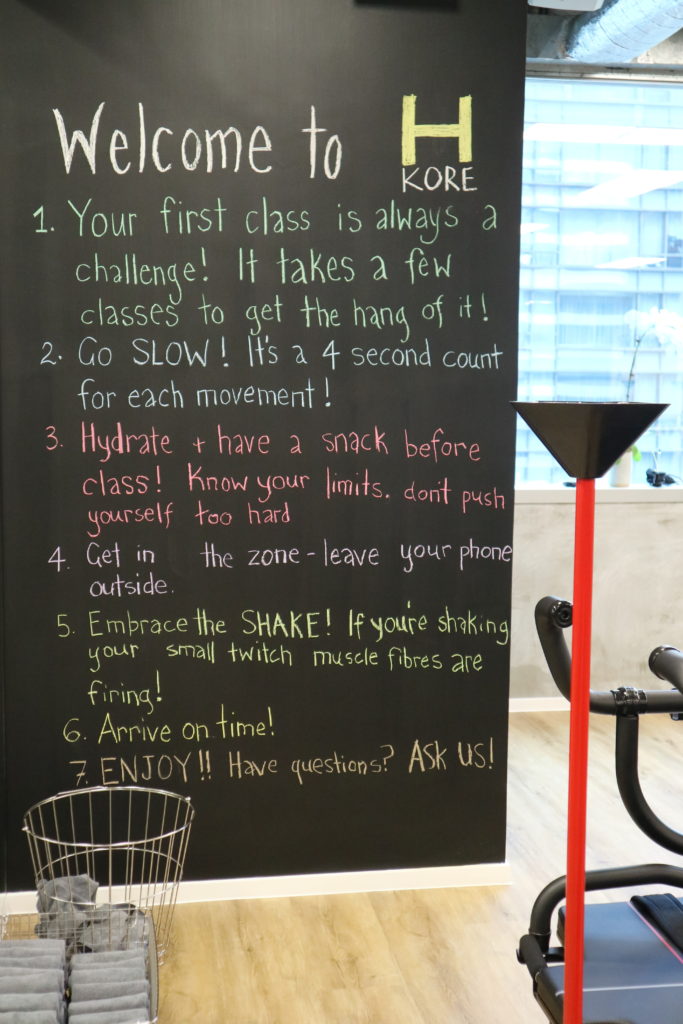 Welcome to H
KORE
1. Your first class is always a
challenge! It takes a few
classes to get the hang of it!
2. Go SLOW! It's a 4 second count
for each movement!
3. Hydrate + have a snack before
class! Know your limits. don't push
yourself too hard
4. Get in the zone - leave your phone
outside.
5. Embrace the SHAKE! If you're shaking
your small twitch muscle fibres are
firing!
6. Arrive on time!
7. ENJOY!! Have questions? ASK US!